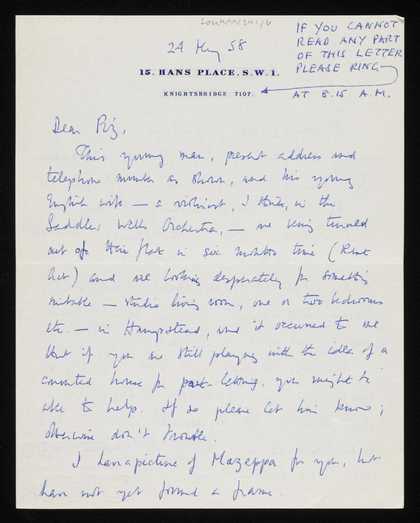 IF YOU CANNOT
READ ANY PART
OF THIS LETTER
PLEASE RING
AT 8.15 A.M.
24 May 58
15, HANS PLACE, S.W.1.
KNIGHTSBRIDGE 7107.
Dear
This young man, present address and
telephone number as shown, and his young
English wife — a violinist, I think, in the
Saddlers Wells Orchestra, — are being turned
out of their flat in six months time (Rent
Act) and are looking desperately for something
suitable — studio living room, one or two bedrooms
etc — in Hampstead, and it occurred to me
that if you are still playing with the idea of a
converted house for part-letting, you might be
able to help. If so please let him know;
otherwise don't trouble.
I have a picture of Mazeppa for you, but
have not yet found a frame.